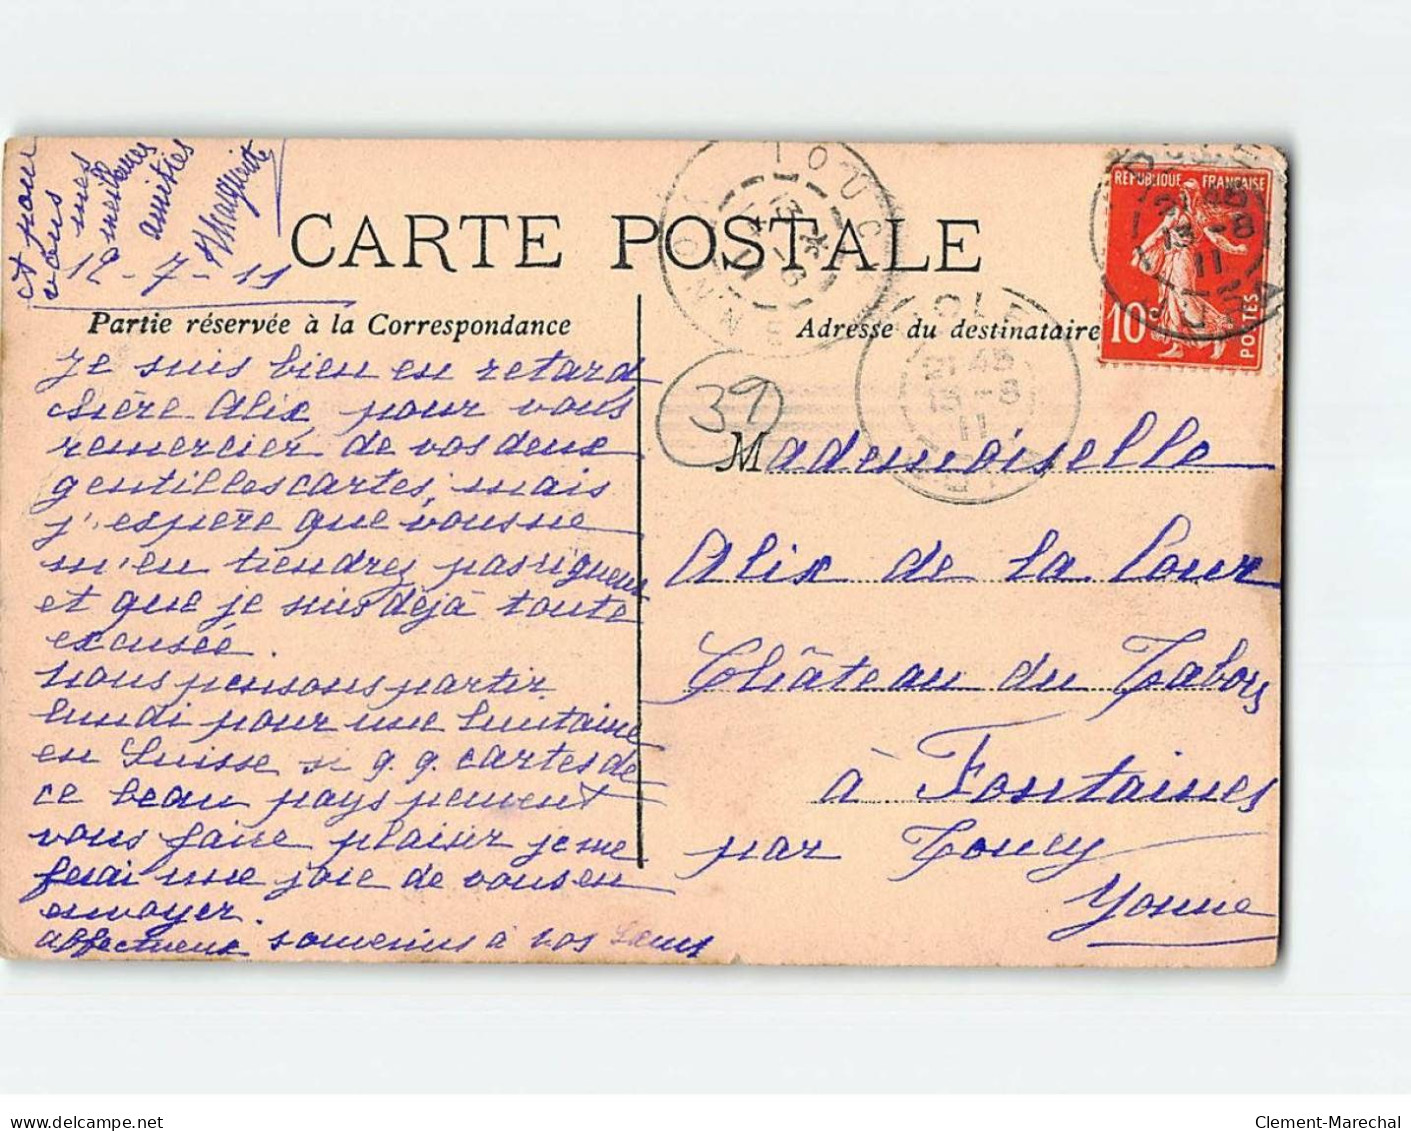 et pour
vous mes
meilleures
amitiés
Marguerite
12-7-11
CARTE POSTALE
Partie réservée à la Correspondance
Adresse du destinataire
RÉPUBLIQUE FRANÇAISE
10c
POSTES
TOUCY
YONNE
DOLE
21 45
13-8
11
JURA
39
Je suis bien en retard
chère Alix, pour vous
remercier de vos deux
gentilles cartes, mais
j'espère que vous ne
m'en tiendrez pas rigueur
et que je suis déjà toute
excusée.
Nous pensons partir
lundi pour une huitaine
en Suisse si q.q. cartes de
ce beau pays peuvent
vous faire plaisir je me
ferai une joie de vous en
envoyer.
affectueux souvenirs à vos sœurs
Mademoiselle
Alix de la Cour
Château du Tabors
à Fontaines
par Toucy
Yonne
delcampe.net
Clement-Marechal